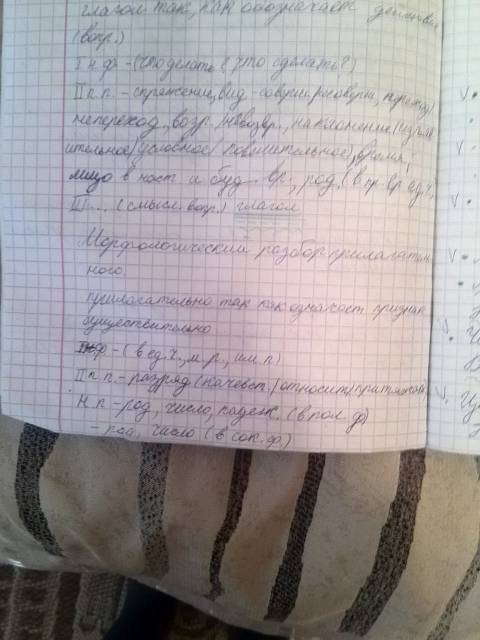 глагол так, как обозначает действие
(вопр.)
I н.ф. - (что делать?, что сделать?)
II п.п. - спряжение, вид - соверш/несоверш, переход/
непереход., возр./невозвр., наклонение (изъяв
ительное/условное/повелительное), время,
лицо в наст. и буд. вр., род. (в пр. вр. ед.ч.)
III ... (смысл. вопр.) глагол
Морфологический разбор прилагатель
ного.
прилагательно так как означает признак
существительно
н.ф - (в ед.ч., м.р., им.п)
II п.п. - разряд (качест./относит/притяжат
Н.п - род, число, падеж. (в пол. ф)
- род, число (в сок.ф.)